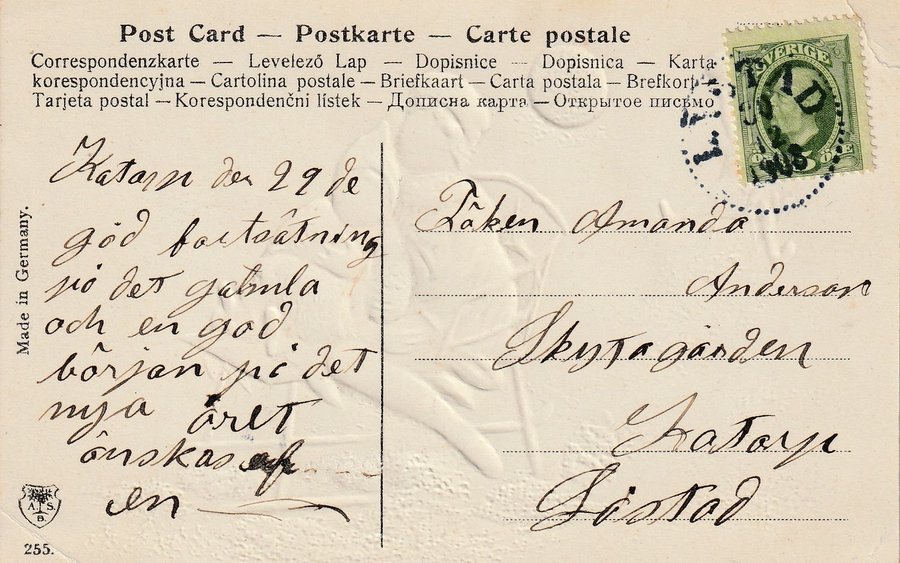 Post Card — Postkarte — Carte postale
Correspondenzkarte — Levelező Lap — Dopisnice — Dopisnica — Karta
korespondencyjna — Cartolina postale — Briefkaart — Carta postala — Brefkort
Tarjeta postal — Korespondenční lístek — Дописна карта — Открытое письмо
SVERIGE
ÖRE
1908
Katorp den 29 de
god fortsätning
på det gamla
och en god
början på det
nya året
önskas af
en
Made in Germany.
A. S.
B.
255.
Fröken Amanda
Anderson
Katorp